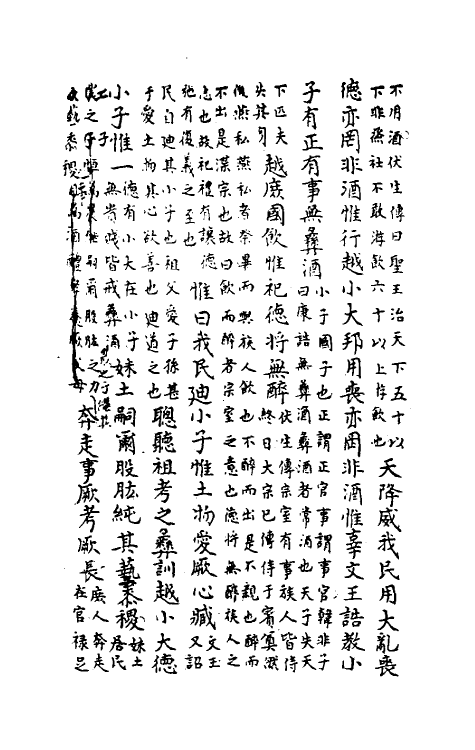 不用酒伏生傳曰聖王治天下五十以
下非烝社不敢游飲六十以上游飲也
天降威我民用大亂喪
德亦罔非酒惟行越小大邦用喪亦罔非酒惟辜文王誥教小
子有正有事無彝酒
小子國子也正謂正官事謂事官韓非子
曰康誥無彝酒彝酒者常酒也天子失天
下匹夫
失其身
越庶國飲惟祀德將無醉
伏生傳宗室有事族人皆侍
終日大宗已侍于賓奠然
後燕私燕私者祭畢而與族人飲也不醉而出是不親也醉而
不出是渫宗也故曰飲而醉者宗室之意也德將無醉族人之
志也故祀禮有讓德
施有復義之至也
惟曰我民迪小子惟土物愛厥心臧
文王
又詔
民自迪其小子也祖父愛子孫甚
于愛土物其心欲善也迪道之也
聰聽祖考之彝訓越小大德
小子惟一
德有小大在小子
無皆戒彝酒
妹土嗣爾股肱純其藝黍稷
妹土
居民
奔走事厥考厥長
庶人奔走
在官祿足